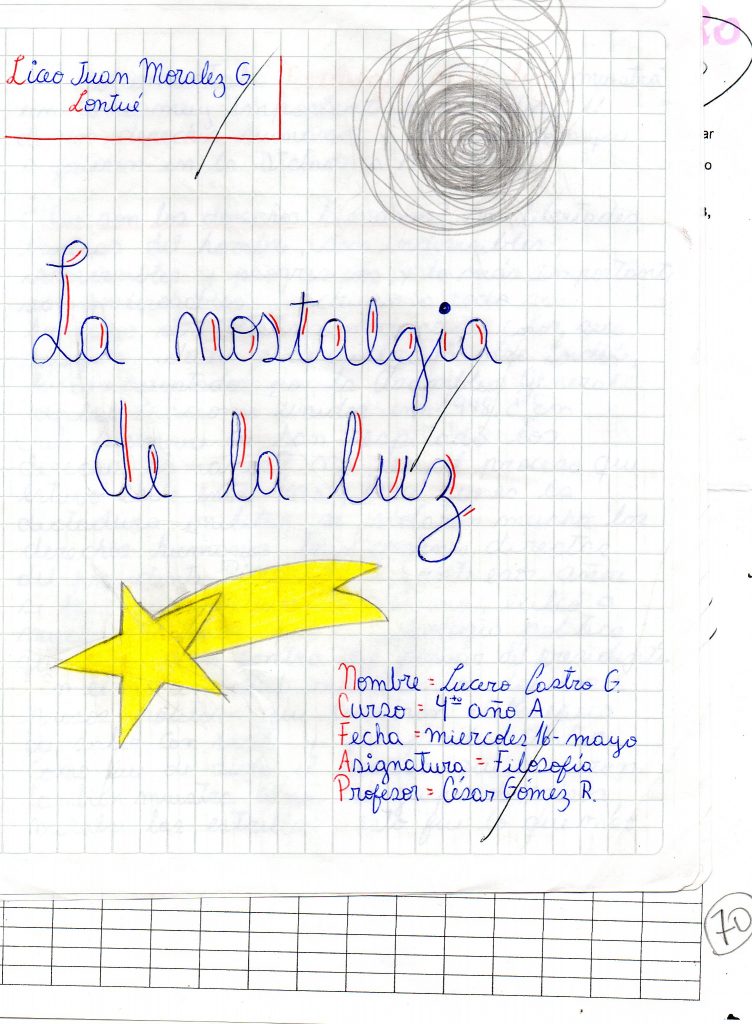 Liceo Juan Moralez G.
Lontué
La nostalgia
de la luz
Nombre = Lucero Castro G.
Curso = 4to año A
Fecha = miercoles 16- mayo
Asignatura = Filosofía
Profesor = César Gómez R.
ar
o
70